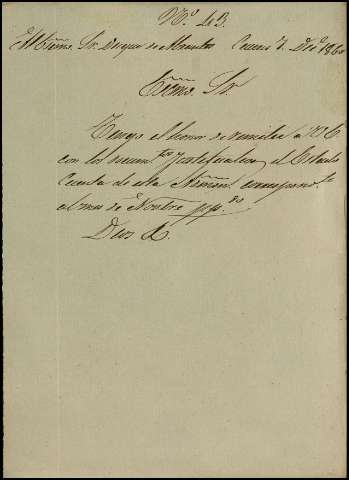 Nº 43.
Al Exmo. Sr. Duque de Dic.e 1860
Exmo. Sr.
Tengo el honor de remitir á V.E.
con los docum.tos justificativos, el Estado
Cuenta de esta Admon. correspond.te
al mes de Novbre ppº.do
Dios &.